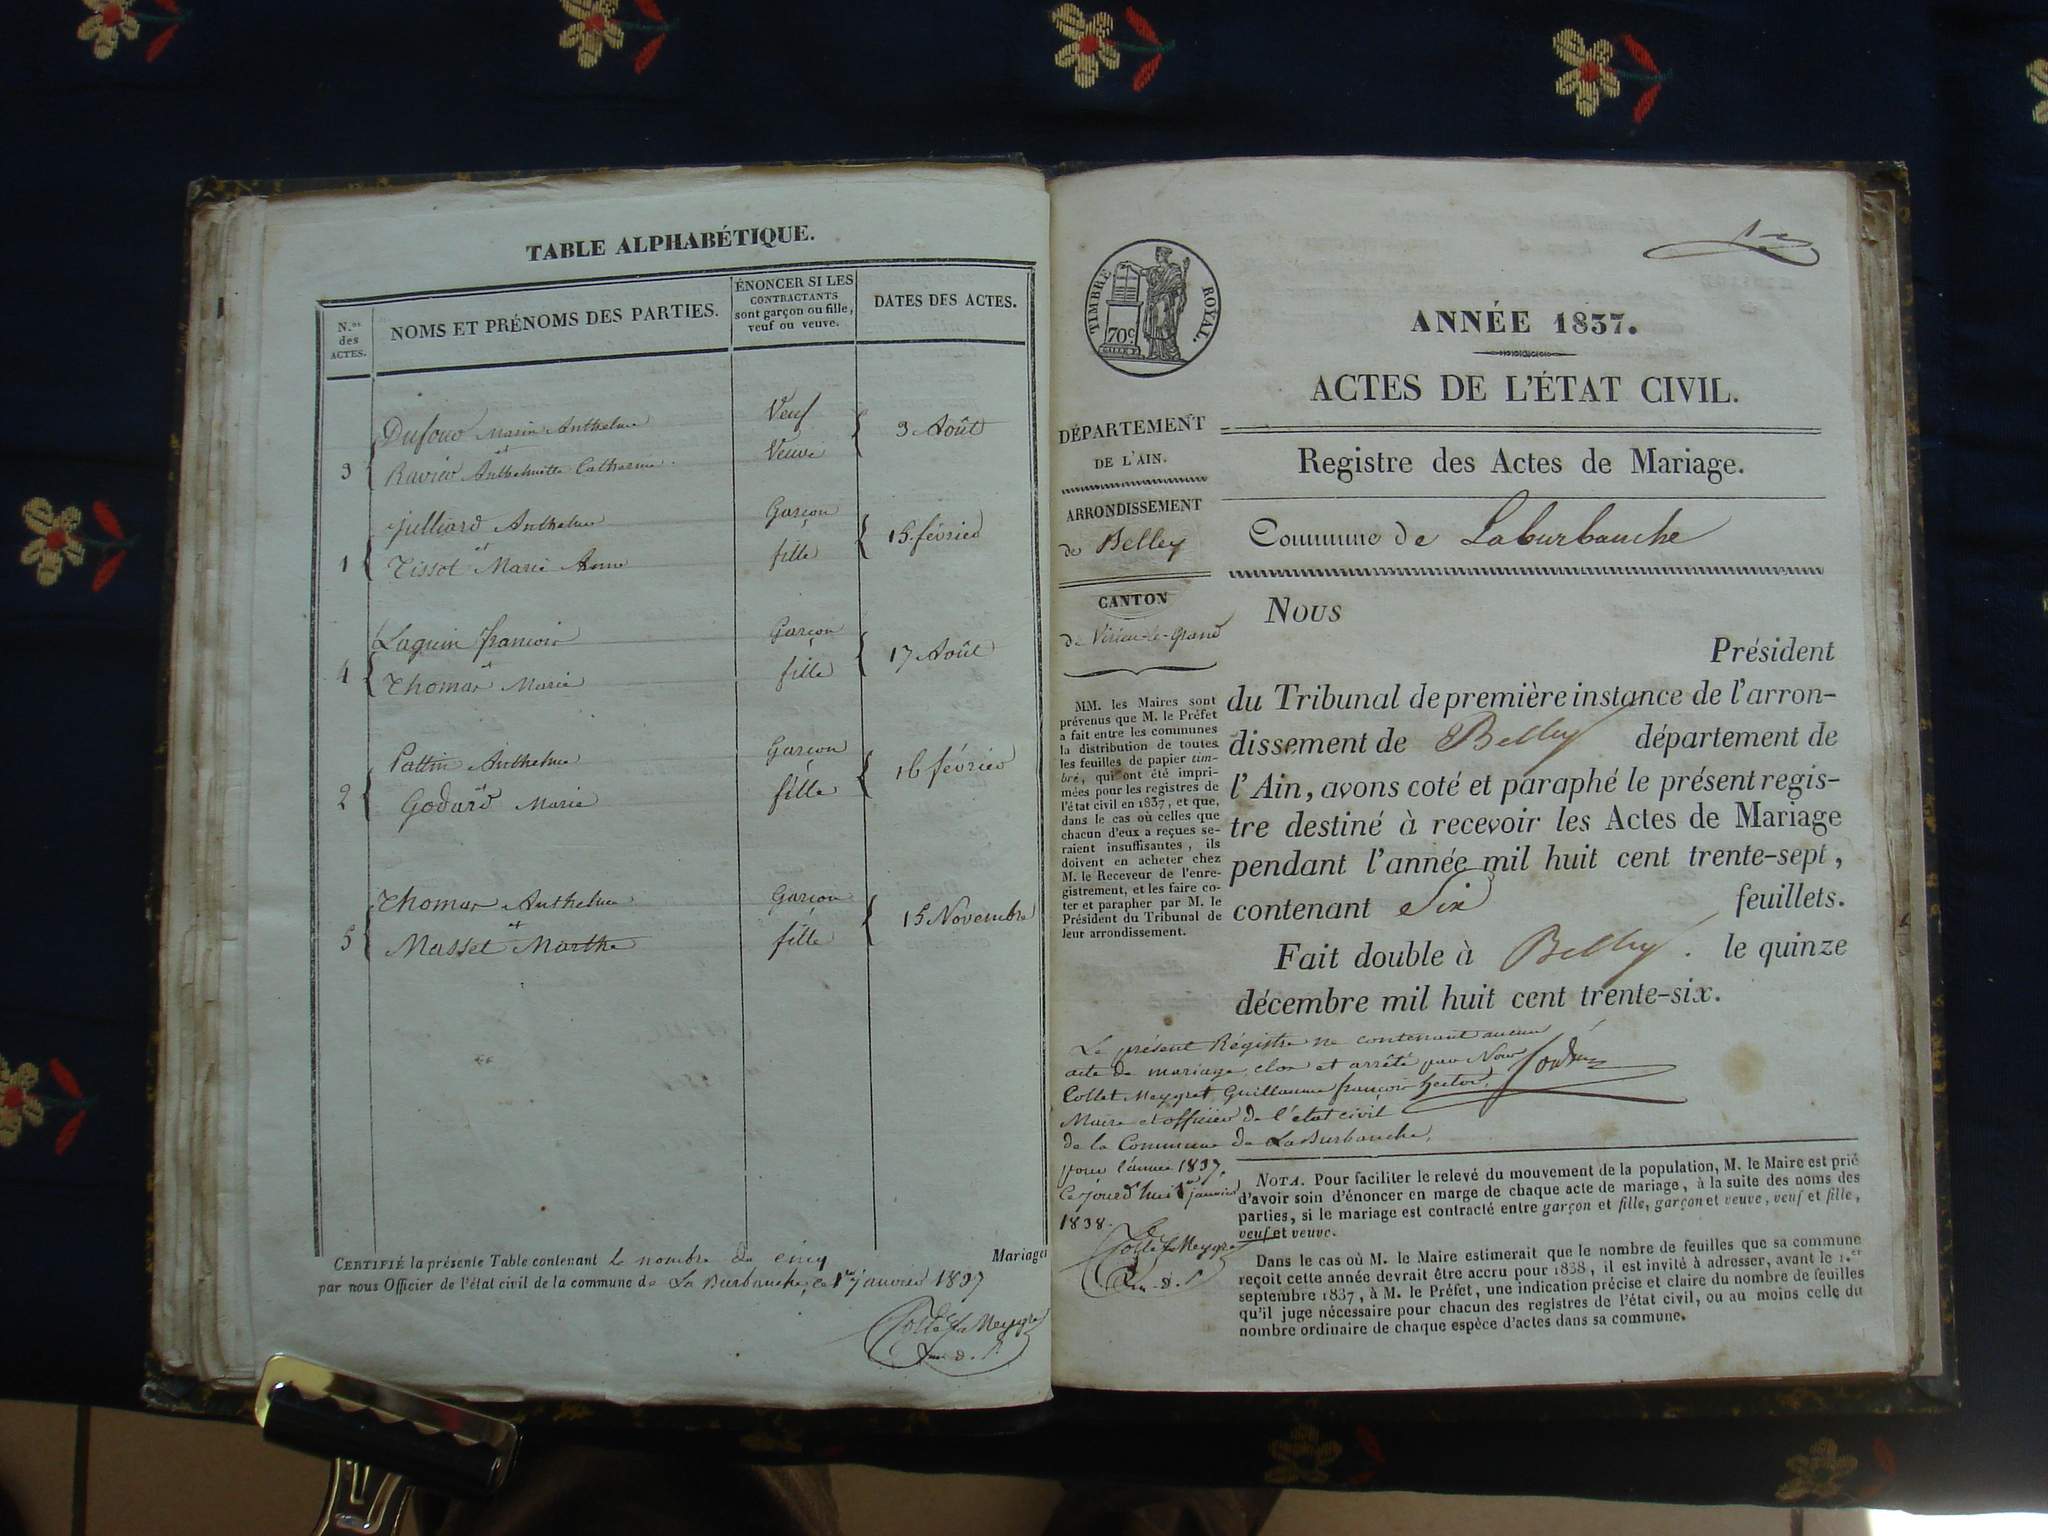 TABLE ALPHABÉTIQUE.
N.os des ACTES.
NOMS ET PRÉNOMS DES PARTIES.
ÉNONCER SI LES
CONTRACTANTS
sont garçon ou fille,
veuf ou veuve.
DATES DES ACTES.
Dufour Marin Anthelme Veuf
3 et 3 Août
Ravier Anthelmette Catherine Veuve
Julliard Anthelme Garçon
1 et 15 février
Tissot Marie Anne fille
Laguin françois Garçon
4 et 17 Août
Thomas Marie fille
Pattin Anthelme Garçon
2 et 16 février
Godard Marie fille
Thomas Anthelme Garçon
5 et 15 Novembre
Masset Marthe fille
CERTIFIÉ la présente Table contenant le nombre de cinq Mariages
par nous Officier de l'état civil de la commune de La Burbanche, ce 1er janvier 1837
Collet Meygret
TIMBRE ROYAL.
70c
1er
ANNÉE 1837.
ACTES DE L'ÉTAT CIVIL.
Registre des Actes de Mariage.
Commune de Laburbanche
DÉPARTEMENT
DE L'AIN.
ARRONDISSEMENT
de Belley
CANTON
de Virieu-le-Grand
MM. les Maires sont
prévenus que M. le Préfet
a fait entre les communes
la distribution de toutes
les feuilles de papier tim-
bré, qui ont été impri-
mées pour les registres de
l'état civil en 1837, et que,
dans le cas où celles que
chacun d'eux a reçues se-
raient insuffisantes, ils
doivent en acheter chez
M. le Receveur de l'enre-
gistrement, et les faire co-
ter et parapher par M. le
Président du Tribunal de
leur arrondissement.
NOUS
Président
du Tribunal de première instance de l'arron-
dissement de Belley département de
l'Ain, avons coté et paraphé le présent regis-
tre destiné à recevoir les Actes de Mariage
pendant l'année mil huit cent trente-sept,
contenant Six feuillets.
Fait double à Belley. le quinze
décembre mil huit cent trente-six.
Le présent Régistre ne contenant aucun
acte de mariage, clos et arrêté par Nous
Collet Meygret, Guillaume françois hector,
Maire et officier de l'état civil
de la Commune de La Burbanche,
pour l'année 1837.
Cejourd'hui 1er janvier
1838.
Collet Meygret
NOTA. Pour faciliter le relevé du mouvement de la population, M. le Maire est prié
d'avoir soin d'énoncer en marge de chaque acte de mariage, à la suite des noms des
parties, si le mariage est contracté entre garçon et fille, garçon et veuve, veuf et fille,
veuf et veuve.
Dans le cas où M. le Maire estimerait que le nombre de feuilles que sa commune
reçoit cette année devrait être accru pour 1838, il est invité à adresser, avant le 1.er
septembre 1837, à M. le Préfet, une indication précise et claire du nombre de feuilles
qu'il juge nécessaire pour chacun des registres de l'état civil, ou au moins celle du
nombre ordinaire de chaque espèce d'actes dans sa commune.